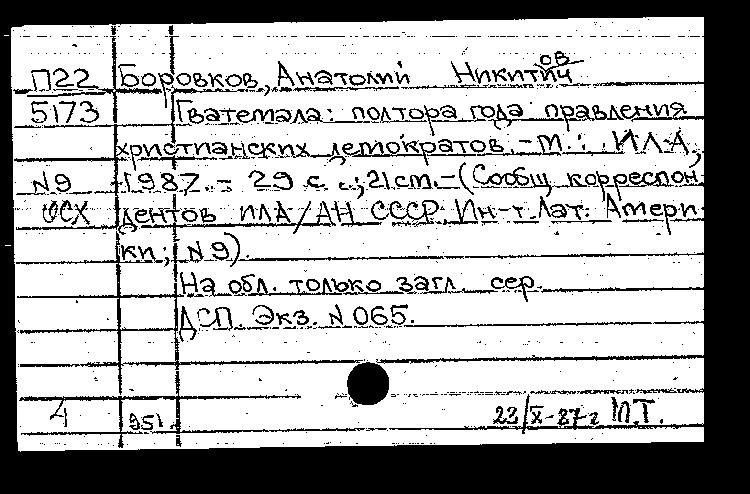 П22 Боровков, Анатолий Никитич
ов
5173 Гватемала: полтора года правления
христианских демократов. - М.: ИЛА,
N9 1987. - 29 с.; 21 cm. - (Сообщ. корреспон-
ФСХ дентов ИЛА/АН СССР. Ин-т Лат. Амери-
ки; N9).
На обл. только загл. сер.
ДСП. Экз. N 065.
4 951. 23/X-87г М.Т.